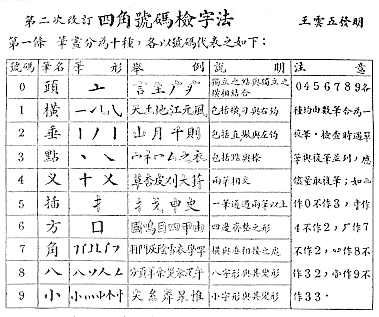 第二次改訂 四角號碼檢字法 王雲五發明
第一條 筆畫分為十種,各以號碼代表之如下:
號碼 筆名 筆形 舉例 說明 注意
0 頭 亠 言主广疒 獨立之點與獨立之橫相結合
1 橫 一 天土地江元風 包括橫刁與右鉤
2 垂 丨丿亅 山月千則 包括直撇與左鉤
3 點 丶 包括點與捺
4 叉 十乂 草杏皮刈大葑 兩筆相交
5 插 扌 戈申史 一筆通過兩筆以上
6 方 口 國鳴目四甲由 四邊齊整之形
7 角 羽門灰陰雪衣學罕 橫與垂相接之處
8 八 八丷人 分頁羊余災汆疋午 八字形與其變形
9 小 小 尖糸粦杲惟 小字形與其變形
0 4 5 6 7 8 9 各
種均由數筆合為一
複筆。檢查時遇單
筆與複筆並列,應
儘量取複筆;如亠
作0不作3,寸作
4不作2,厂作7
不作2,丷作8不
作3 2,小作9不
作3 3.